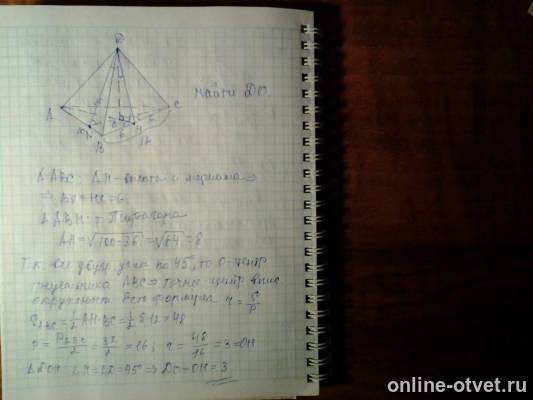 D
A
C
B
H
10
12
найти DO.
Δ ABC: AH - высота и медиана ⇒
⇒ BH = HC = 6
Δ ABH: т. Пифагора
AH = √100-36 = √64 = 8
Т.к. все двугр. угла по 45°, то O - центр
треугольника ABC = точка центр впис
окружности Есть формула r = S/p
S ABC = 1/2 AH·BC = 1/2 8·12 = 48
p = P ABC/2 = 32/2 = 16; r = 48/16 = 3 = OH
Δ DOH ∠H = ∠D = 45° ⇒ DO = OH = 3
online-otvet.ru